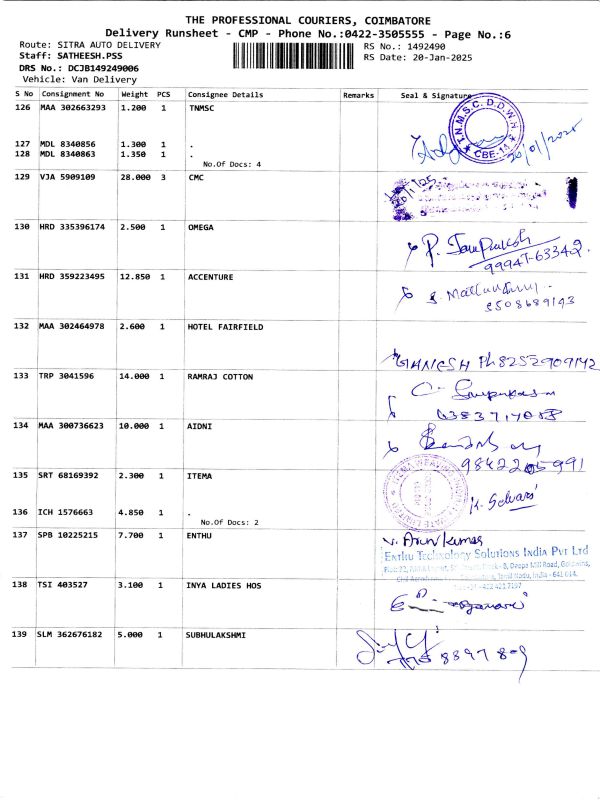 THE PROFESSIONAL COURIERS, COIMBATORE
Delivery Runsheet - CMP - Phone No.:0422-3505555 - Page No.:6
Route: SITRA AUTO DELIVERY RS No.: 1492490
Staff: SATHEESH.PSS RS Date: 20-Jan-2025
DRS No.: DCJB149249006
Vehicle: Van Delivery
S No Consignment No Weight PCS Consignee Details Remarks Seal & Signature
126 MAA 302663293 1.200 1 TNMSC
T.N.M.S.C. D.D.W.H. CBE-14
20/01/2025
127 MDL 8340856 1.300 1 .
128 MDL 8340863 1.350 1 .
No.Of Docs: 4
129 VJA 5909109 28.000 3 CMC
130 HRD 335396174 2.500 1 OMEGA
P. JayPrakash
99947-63342
131 HRD 359223495 12.850 1 ACCENTURE
9508689193
132 MAA 302464978 2.600 1 HOTEL FAIRFIELD
GANESH Ph 8252909142
133 TRP 3041596 14.000 1 RAMRAJ COTTON
134 MAA 300736623 10.000 1 AIDNI
9842205991
135 SRT 68169392 2.300 1 ITEMA
K. Selvari
136 ICH 1576663 4.850 1 .
No.Of Docs: 2
137 SPB 10225215 7.700 1 ENTHU
V. Arun Kumar
Enthu Technology Solutions India Pvt Ltd
Deepa Mill Road, Goldwins,
Tamil Nadu, India - 641 014.
138 TSI 403527 3.100 1 INYA LADIES HOS
139 SLM 362676182 5.000 1 SUBHULAKSHMI